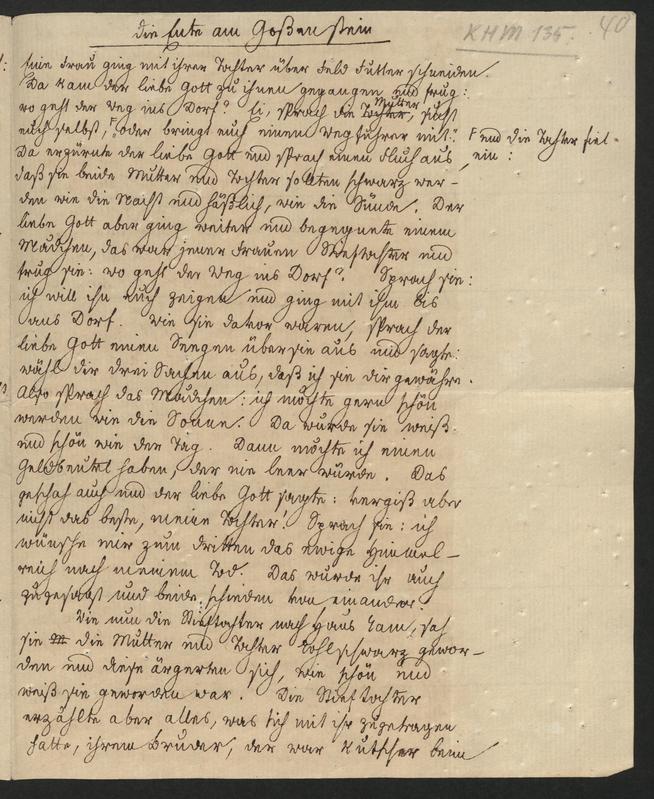 KHM 135.
40
Die Ente am Goßenstein
Eine Frau ging mit ihrer Tochter über Feld Futter schneiden.
Da kam der liebe Gott zu ihnen gegangen und frug:
wo geht der Weg ins Dorf? Ei, sprach die Tochter Mutter, sucht
euch selbst, F oder bringt euch einen Wegführer mit.
F und die Tochter fiel
ein:
Da erzürnte der liebe Gott und sprach einen Fluch aus,
daß sie beide Mutter und Tochter sollten schwarz wer-
den wie die Nacht und häßlich, wie die Sünde. Der
liebe Gott aber ging weiter und begegnete einem
Mädchen, das war jener Frauen Stieftochter und
frug sie: wo geht der Weg ins Dorf? Sprach sie:
ich will ihn euch zeigen und ging mit ihm bis
ans Dorf. Wie sie davor waren, sprach der
liebe Gott einen Seegen über sie aus und sagte:
wähl dir drei Sachen aus, daß ich sie dir gewähre.
Also sprach das Mädchen: ich möchte gern schön
werden wie die Sonne. Da wurde sie weiß
und schön wie der Tag. Dann möchte ich einen
Geldbeutel haben, der nie leer würde. Das
geschah auch und der liebe Gott sagte: vergiß aber
nicht das beste, meine Tochter! Sprach sie: ich
wünsche mir zum dritten das ewige Himmel-
reich nach meinem Tod. Das wurde ihr auch
zugesagt und beide schieden von einander.
Wie nun die Stieftochter nach Haus kam, sah
sie die Mutter und Tochter kohlschwarz gewor-
den und diese ärgerten sich, wie schön und
weiß sie geworden war. Die Stieftochter
erzählte aber alles, was sich mit ihr zugetragen
hatte, ihrem Bruder, der war Kutscher beim